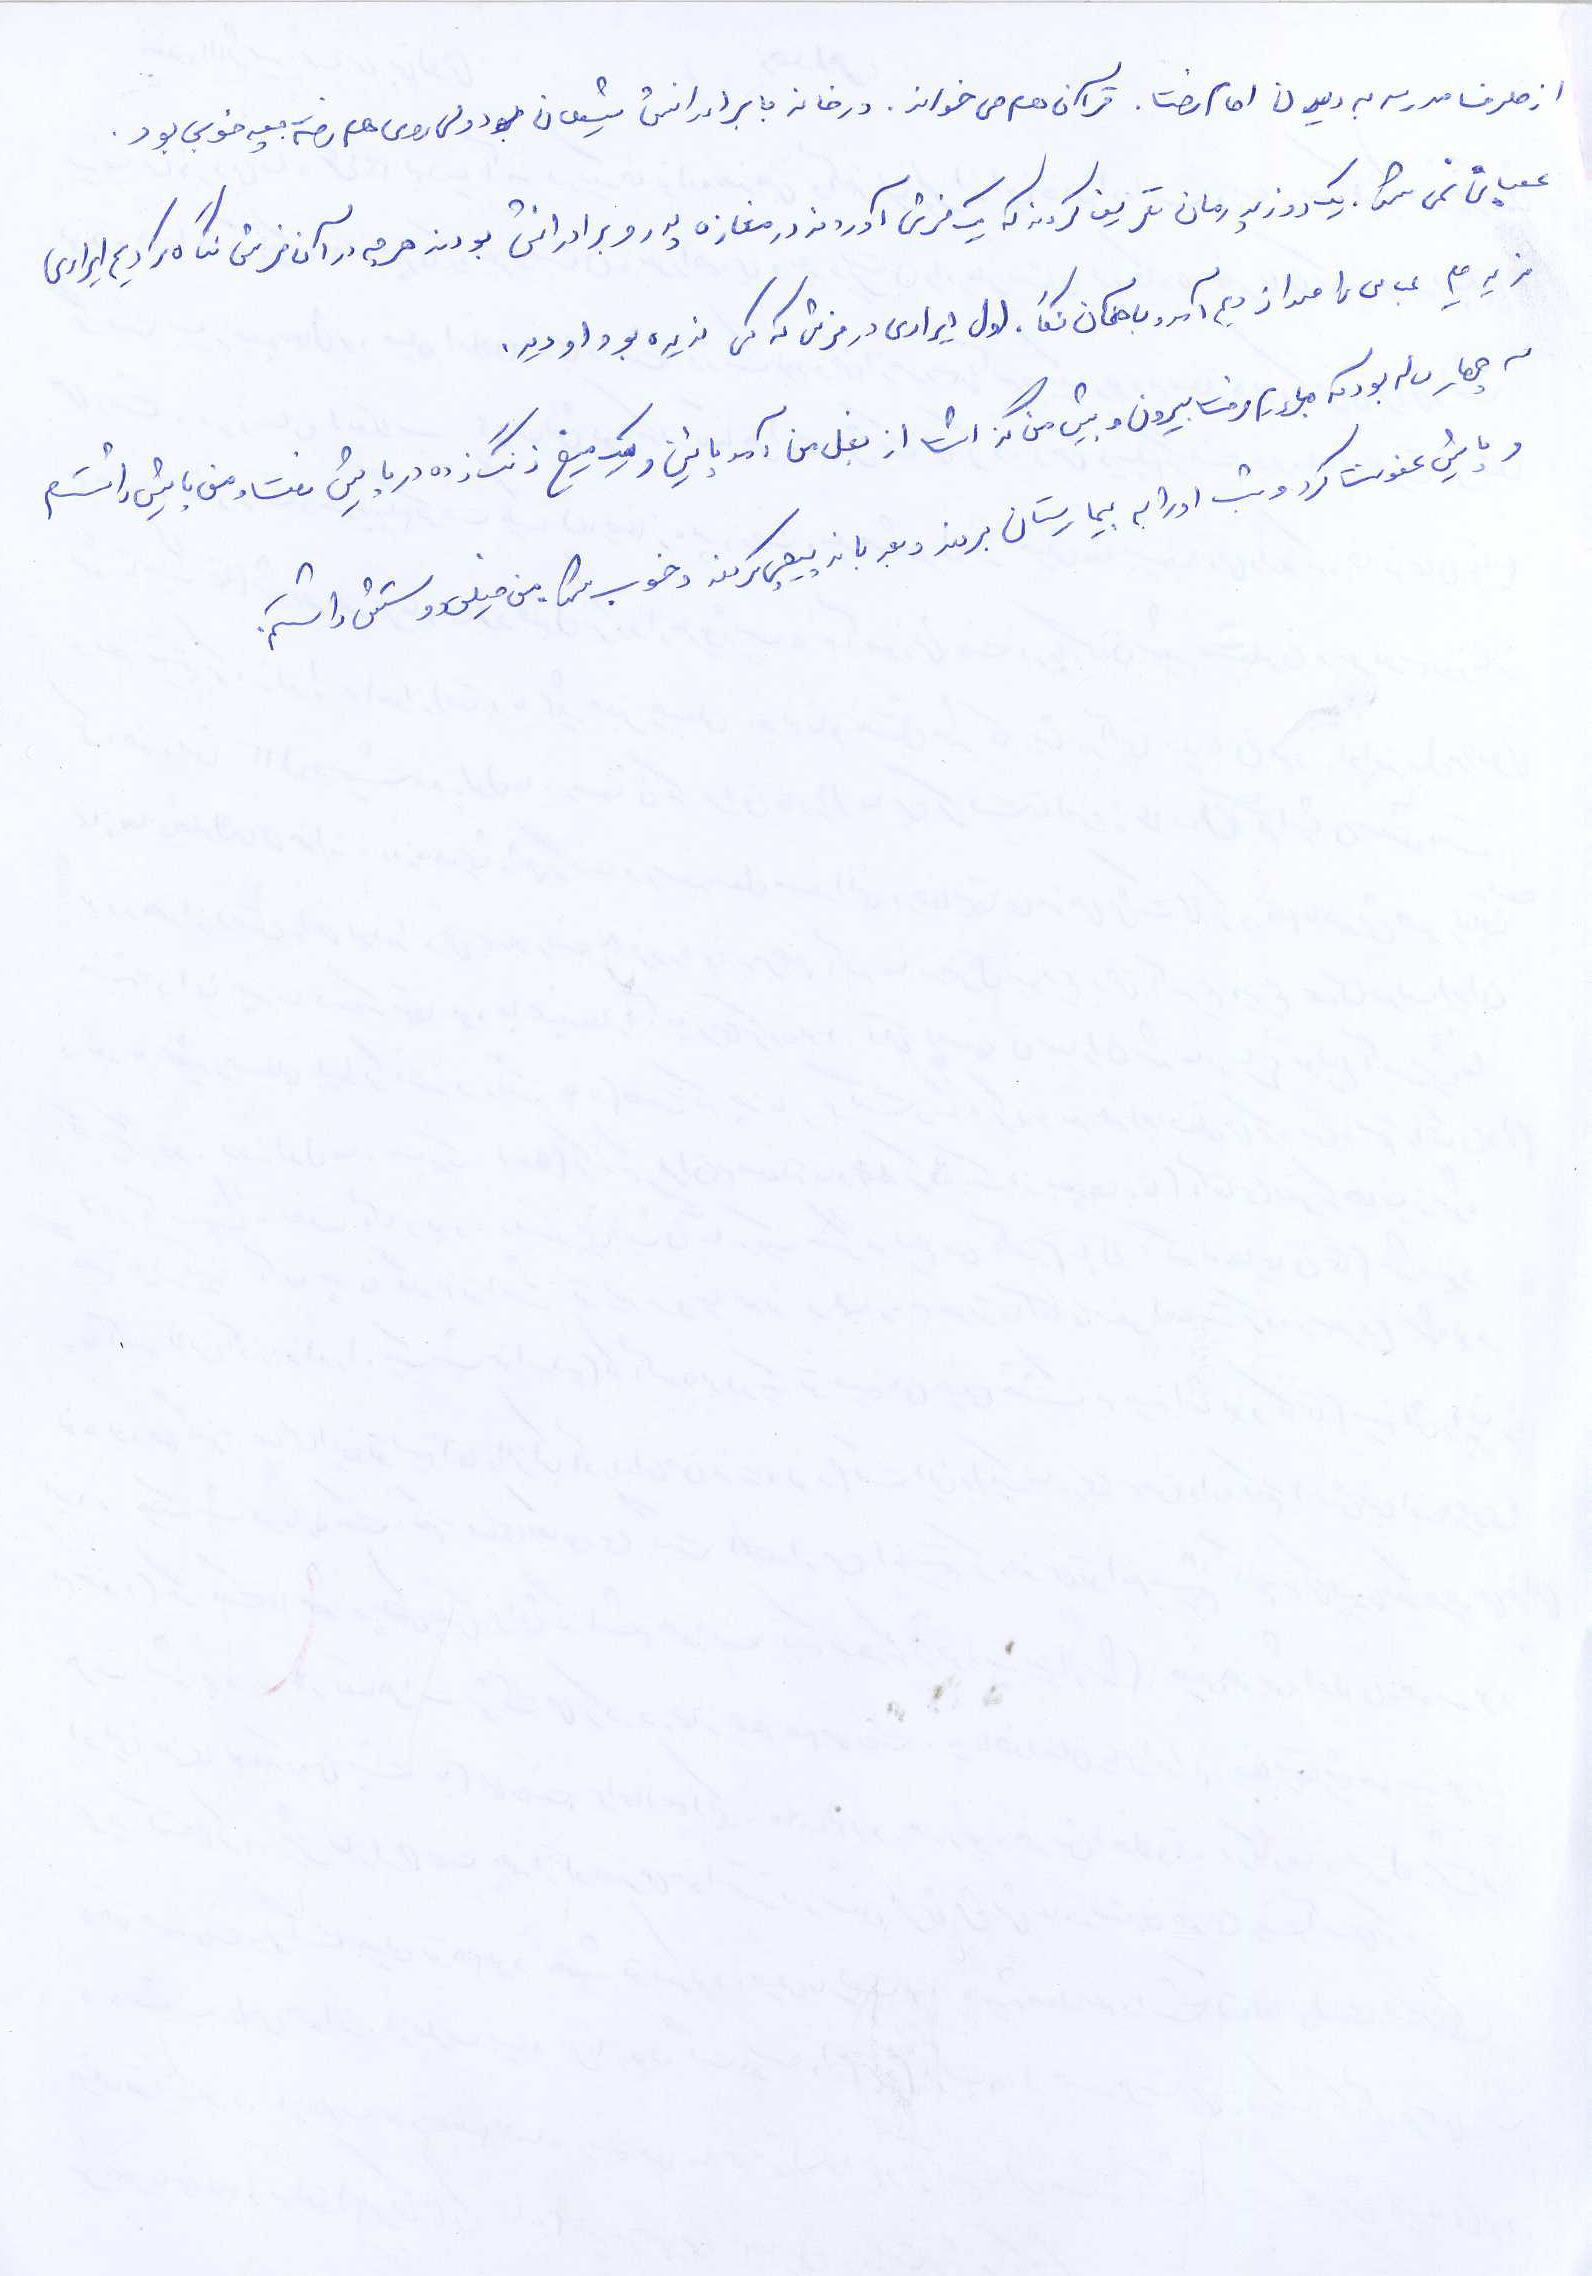 از طرف مدرسه به دیدن امام رفت. قرآن هم می خواند. در خانه با برادرانش شیطان بود ولی روی هم رفته بچه خوبی بود.
عصبانی نمی شد. یک روز پدرمان تعریف کردند که یک فرش آوردند در مغازه پدر و برادرانش بودند هر چه در آن فرش نگاه کردیم ایرادی
ندیدیم عباس را صدا زدیم آمد و با همان نگاه اول ایرادی در فرش که کسی ندیده بود او دید.
سه چهار ساله بود که مادرم رفت بیرون و پیش من گذاشت از بغل من آمد پائین و یک میخ زنگ زده در پایش رفت و من پایش را شستم
و پایش عفونت کرد و شب او را به بیمارستان بردند و بعد باند پیچی کردند و خوب شد. من خیلی دوستش داشتم.